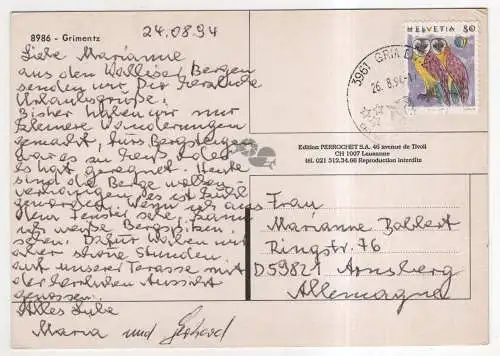 8986 - Grimentz
24.08.94
Liebe Marianne
aus den Walliser Bergen
senden wir Dir herzliche
Urlaubsgrüße.
Bisher haben wir nur
kleinere Wanderungen
gemacht, fürs Bergsteigen
war es zu heiß oder
es hat geregnet. Heute
sind die Berge
es ist kühl
geworden. Wenn ich aus
dem Fenster sehe, kann
ich weiße Bergspitzen
sehen. Dafür haben wir
aber schöne Stunden
auf unserer Terasse mit
der herrlichen Aussicht
genossen.
Alles Liebe
Maria und Gerhard
HELVETIA 80
3961 GRIMENTZ
26.8.94
Edition PERROCHET S.A. 46 avenue de Tivoli
CH 1007 Lausanne
tél. 021 312.34.66 Reproduction interdite
Frau
Marianne Babbert
Ringstr. 76
D 59821 Arnsberg
Allemagne